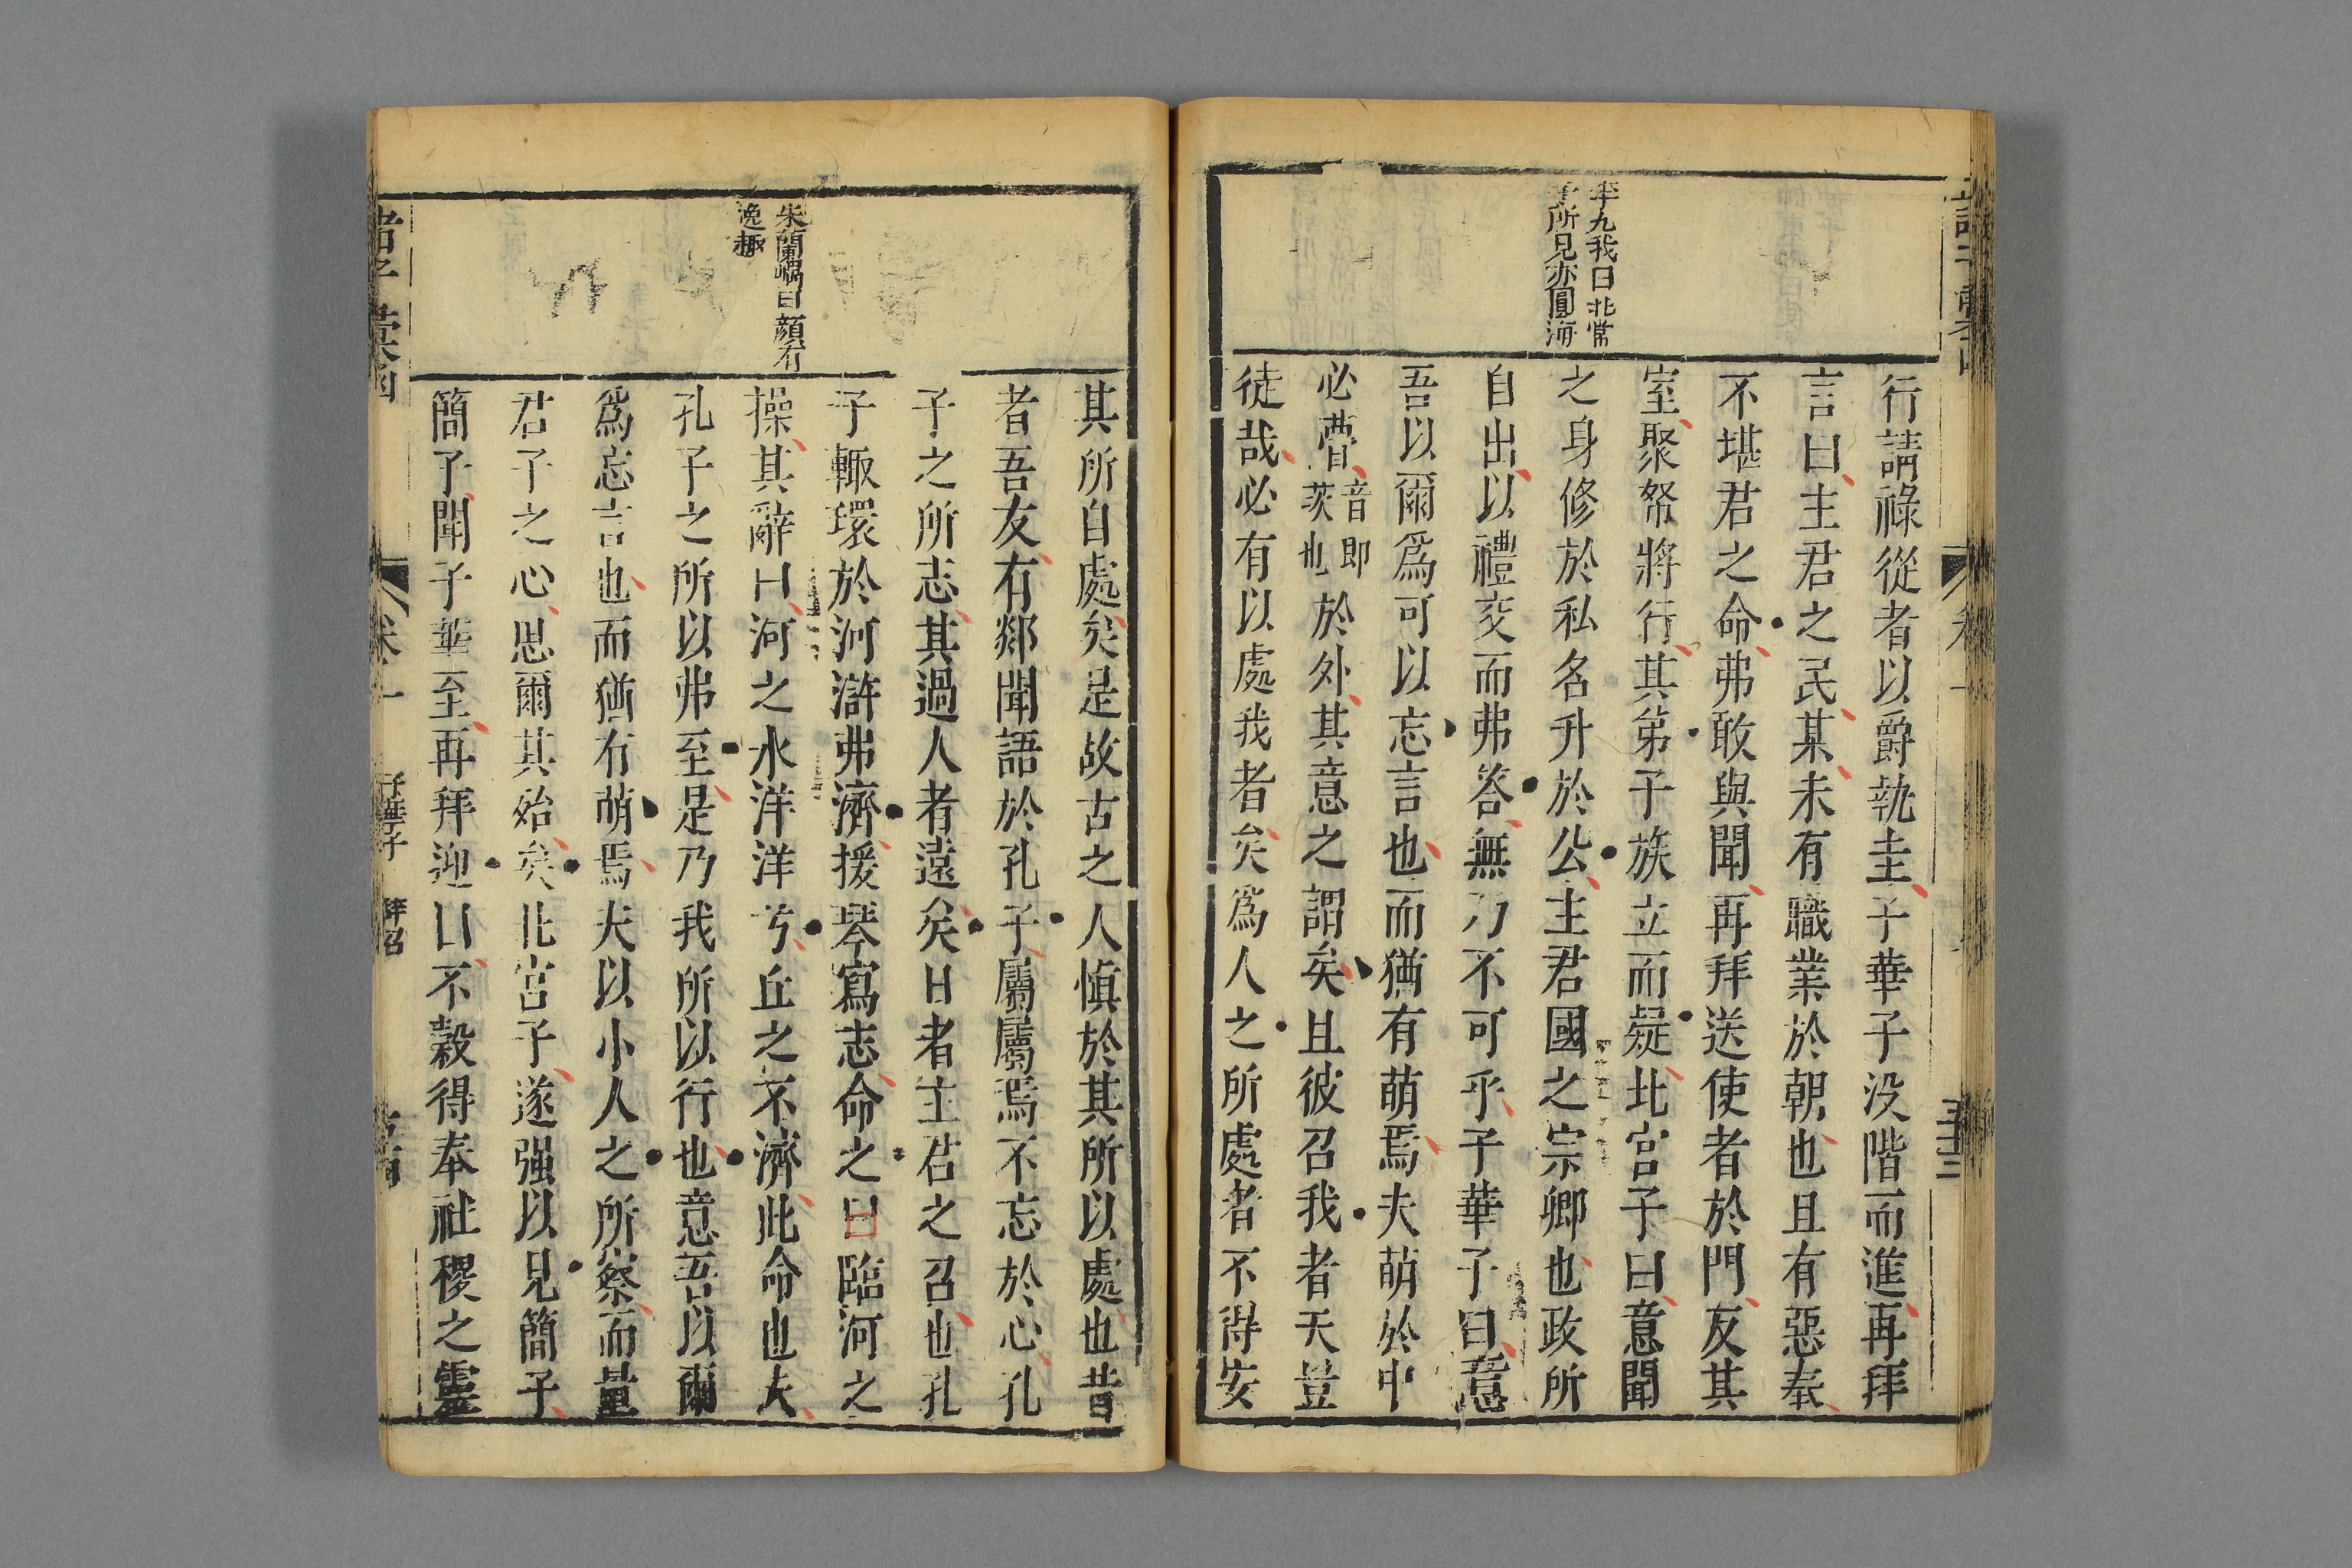 李九我曰北當
子所見亦圓海
行請祿從者以爵執圭子華子没階而進再拜
言曰主君之民某未有職業於朝也且有惡奉
不堪君之命弗敢與聞再拜送使者於門友其
室聚帑將行其弟子族立而疑北宮子曰意聞
之身修於私名升於公主君國之宗卿也政所
自出以禮交而弗答無乃不可乎子華子曰意
吾以爾爲可以忘言也而猶有萌焉夫萌於中
必瞢音即茨也於外其意之謂矣且彼召我者天豈
徒哉必有以處我者矣爲人之所處者不得安
朱蘭嵎曰顏有
逸趣
其所自處矣是故古之人慎於其所以處也昔
者吾友有郯聞語於孔子屬屬焉不忘於心孔
子之所志其過人者遠矣日者主君之召也孔
子輙環於河滸弗濟援琴寫志命之曰臨河之
操其辭曰河之水洋洋兮丘之不濟此命也夫
孔子之所以弗至是乃我所以行也意吾以爾
爲忘言也而猶有萌焉夫以小人之所察而量
君子之心思爾其殆矣北宮子遂强以見簡子
簡子聞子華至再拜迎曰不穀得奉社稷之靈
卷一
子華子
辭召